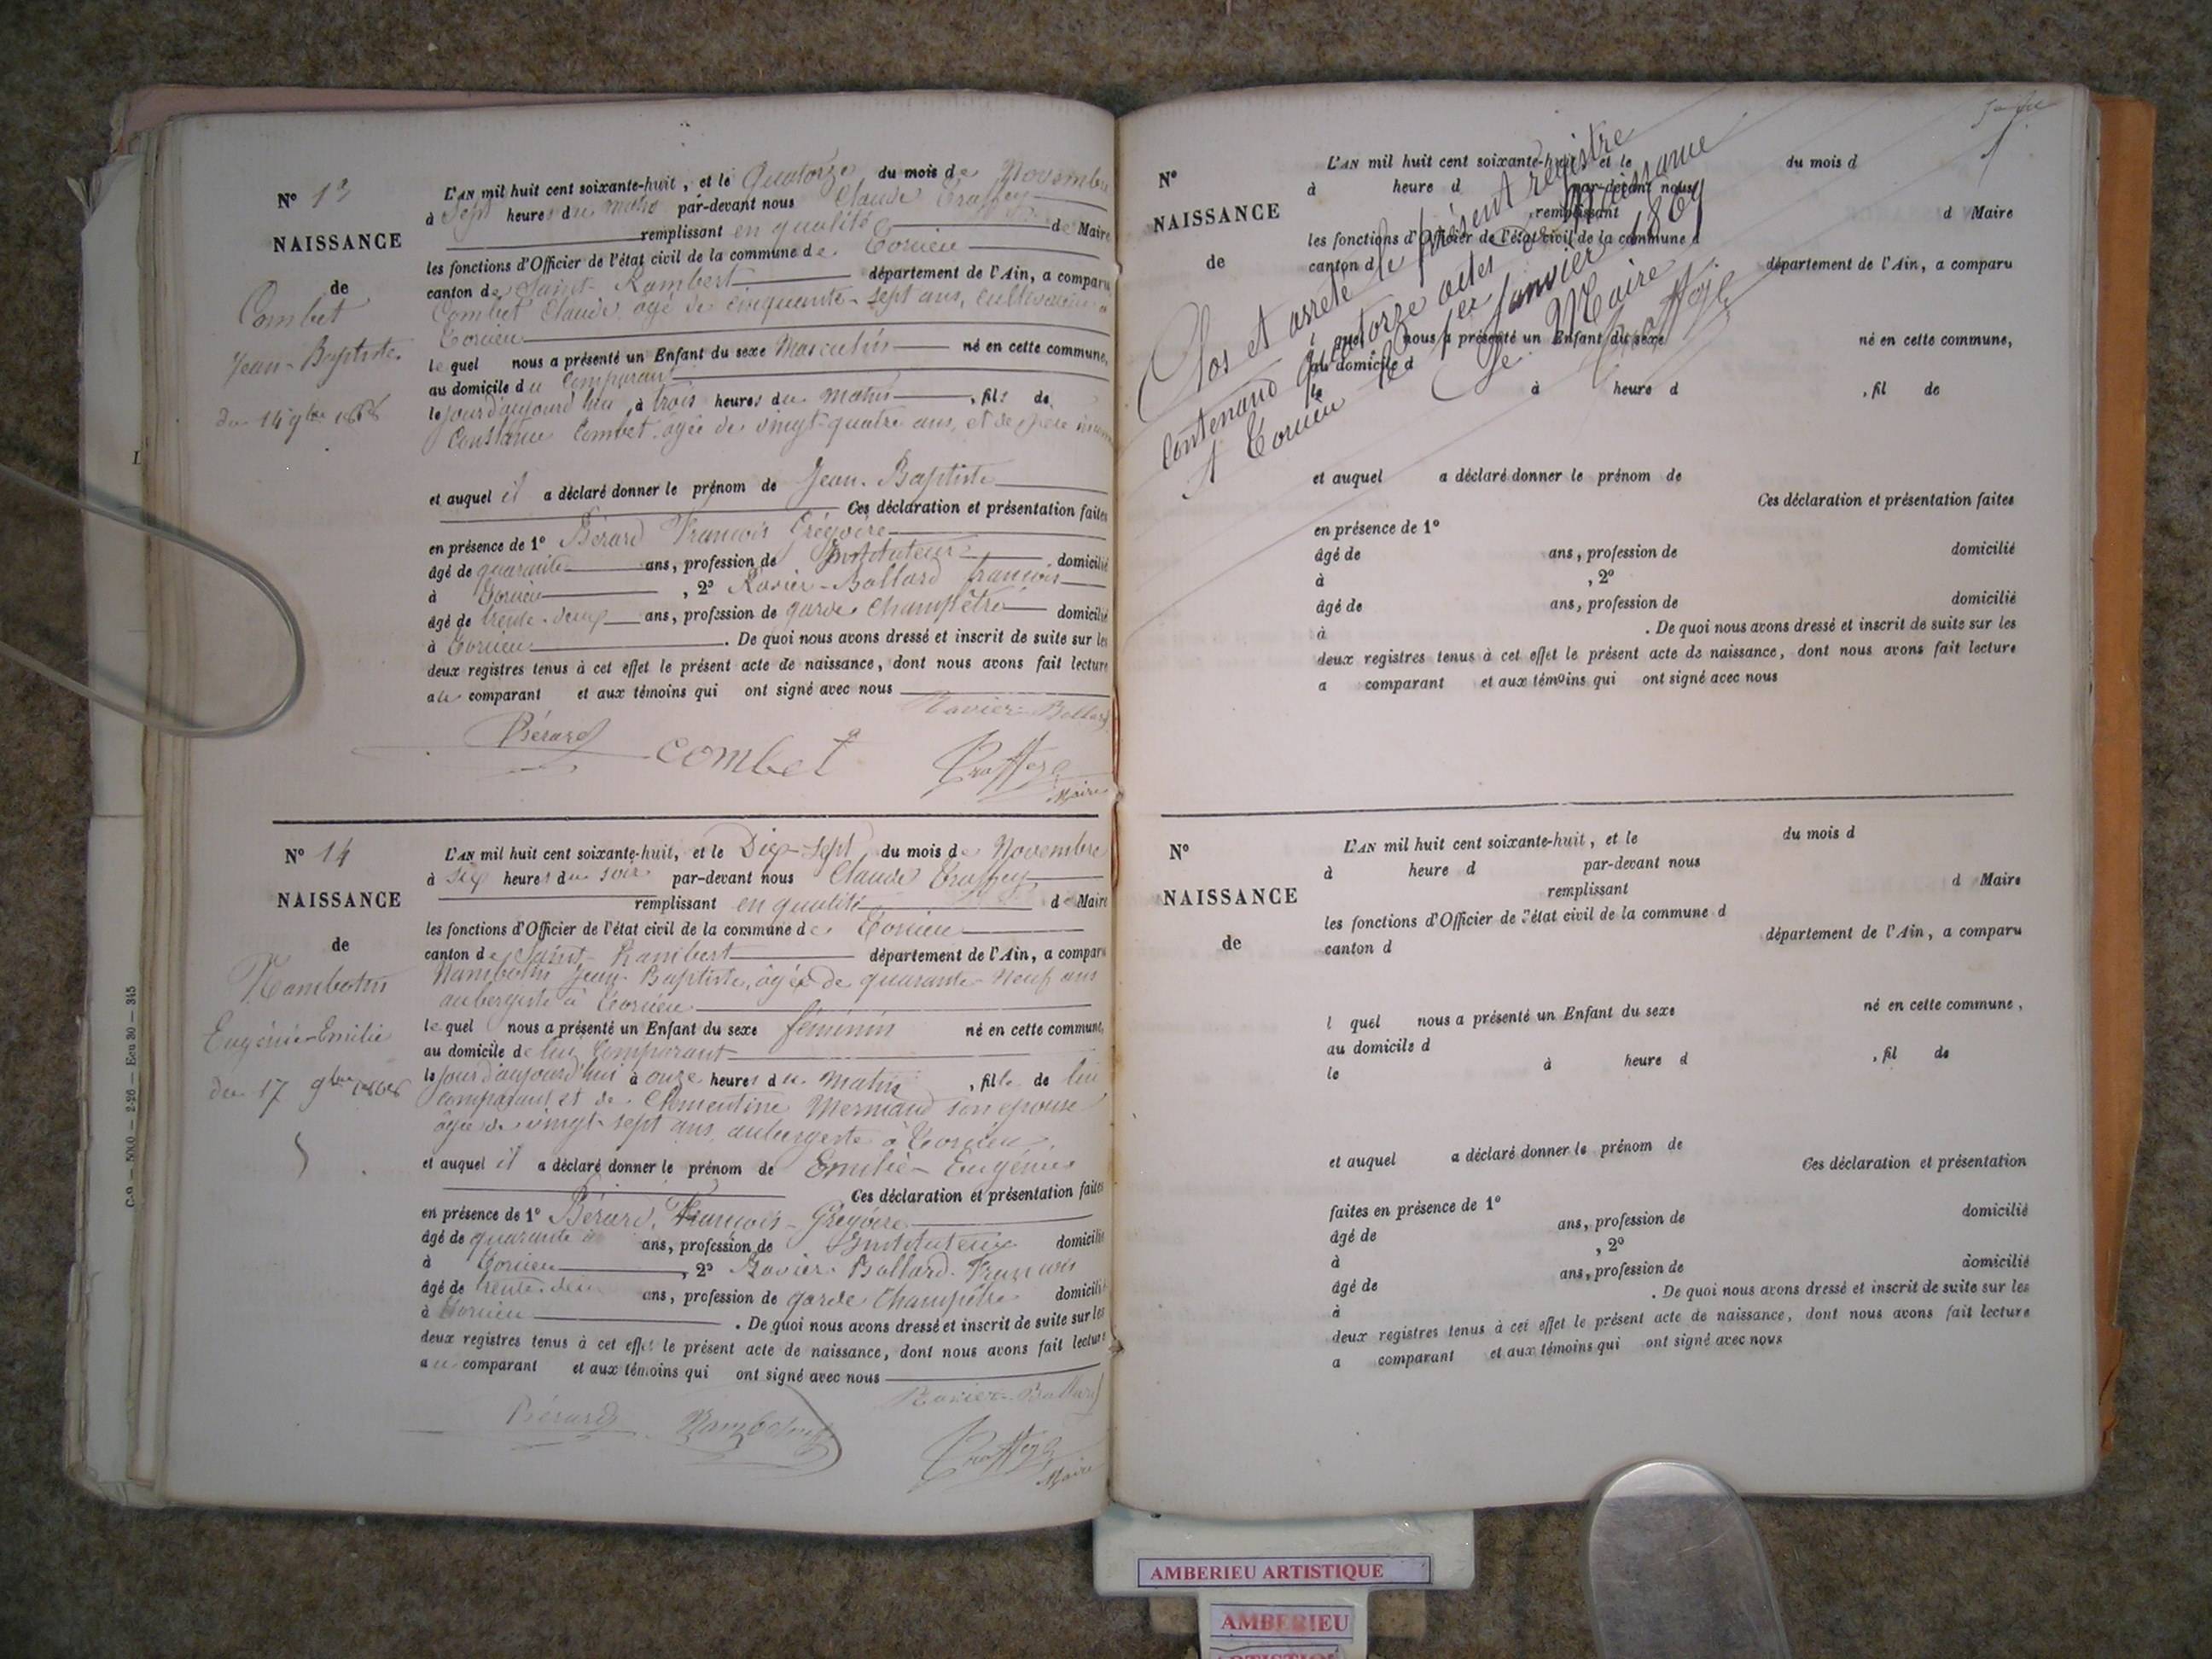 N° 13
NAISSANCE
de
Combet
Jean-Baptiste
du 14 9bre 1868
L'AN mil huit cent soixante-huit, et le Quatorze du mois de Novembre
à Sept heures du matin par-devant nous Claude Traffey
remplissant en qualité de Maire
les fonctions d'Officier de l'état civil de la commune de Torcieu
canton de Saint-Rambert département de l'Ain, a comparu
Combet Claude âgé de cinquante-sept ans, cultivateur à
Torcieu
lequel nous a présenté un Enfant du sexe Masculin né en cette commune,
au domicile du Comparant
le jour d'aujourd'hui à trois heures du matin, fils de
Constance Combet, âgée de vingt-quatre ans, et de père
et auquel il a déclaré donner le prénom de Jean-Baptiste
Ces déclaration et présentation faites
en présence de 1° Bérard François Grégoire
âgé de quarante ans, profession de Instituteur domicilié
à Torcieu, 2° Ravier-Ballard françois
âgé de trente-deux ans, profession de garde Champêtre domicilié
à Torcieu. De quoi nous avons dressé et inscrit de suite sur les
deux registres tenus à cet effet le présent acte de naissance, dont nous avons fait lecture
au comparant et aux témoins qui ont signé avec nous
Ravier-Ballard
Bérard Combet Traffey
Maire
N° 14
NAISSANCE
de
Nambotin
Eugénie-Emilie
du 17 9bre 1868
L'AN mil huit cent soixante-huit, et le Dix-Sept du mois de Novembre
à six heures du soir par-devant nous Claude Traffey
remplissant en qualité de Maire
les fonctions d'Officier de l'état civil de la commune de Torcieu
canton de Saint-Rambert département de l'Ain, a comparu
Nambotin Jean-Baptiste, âgée de quarante-Neuf ans
aubergiste à Torcieu
lequel nous a présenté un Enfant du sexe féminin né en cette commune,
au domicile de lui Comparant
le jour d'aujourd'hui à onze heures du Matin, fille de lui
comparant et de Clémentine Mermand son épouse
âgée de vingt-sept ans, aubergiste à Torcieu
et auquel il a déclaré donner le prénom de Emilie-Eugénie
Ces déclaration et présentation faites
en présence de 1° Bérard, François-Grégoire
âgé de quarante ans, profession de Instituteur domicilié
à Torcieu, 2° Ravier-Ballard François
âgé de trente-deux ans, profession de garde Champêtre domicilié
à Torcieu. De quoi nous avons dressé et inscrit de suite sur les
deux registres tenus à cet effet le présent acte de naissance, dont nous avons fait lecture
au comparant et aux témoins qui ont signé avec nous
Ravier-Ballard
Bérard Nambotin Traffey
Maire
C.9 — 5000 — 2-26 — Ecu 30 — 345
N°
NAISSANCE
de
L'AN mil huit cent soixante-huit, et le du mois d
à heure d par-devant nous
remplissant d Maire
les fonctions d'Officier de l'état civil de la commune d
canton d département de l'Ain, a comparu
Clos et arrêté le présent registre
Contenand quatorze actes de Naissance
A Torcieu le 1er Janvier 1869
Le Maire
Traffey
l quel nous a présenté un Enfant du sexe né en cette commune,
au domicile d
le à heure d , fil de
et auquel a déclaré donner le prénom de
Ces déclaration et présentation faites
en présence de 1°
âgé de ans, profession de domicilié
à , 2°
âgé de ans, profession de domicilié
à . De quoi nous avons dressé et inscrit de suite sur les
deux registres tenus à cet effet le présent acte de naissance, dont nous avons fait lecture
a comparant et aux témoins qui ont signé avec nous
N°
NAISSANCE
de
L'AN mil huit cent soixante-huit, et le du mois d
à heure d par-devant nous
remplissant d Maire
les fonctions d'Officier de l'état civil de la commune d
canton d département de l'Ain, a comparu
l quel nous a présenté un Enfant du sexe né en cette commune,
au domicile d
le à heure d , fil de
et auquel a déclaré donner le prénom de
Ces déclaration et présentation
faites en présence de 1°
âgé de ans, profession de domicilié
à , 2°
âgé de ans, profession de domicilié
à . De quoi nous avons dressé et inscrit de suite sur les
deux registres tenus à cet effet le présent acte de naissance, dont nous avons fait lecture
a comparant et aux témoins qui ont signé avec nous
AMBERIEU ARTISTIQUE
AMBERIEU
ARTISTIQUE